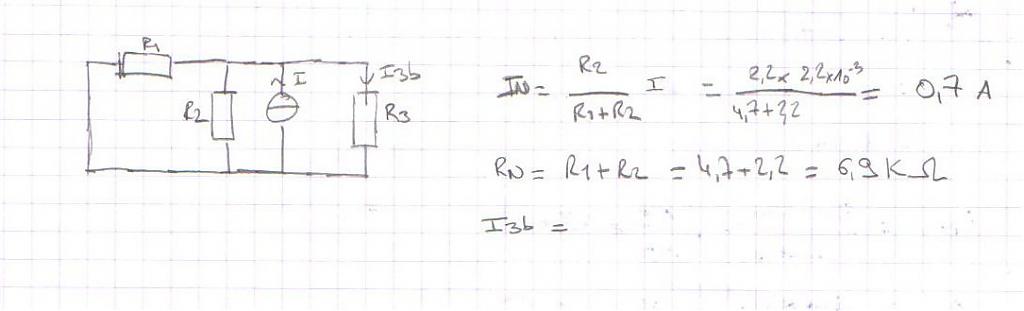 R1
I
I3b
R2
R3
IN = R2 / R1+R2 I = 2,2 x 2,2x10^-3 / 4,7+2,2 = 0,7 A
RN = R1 + R2 = 4,7+2,2 = 6,9 K Ω
I3b =